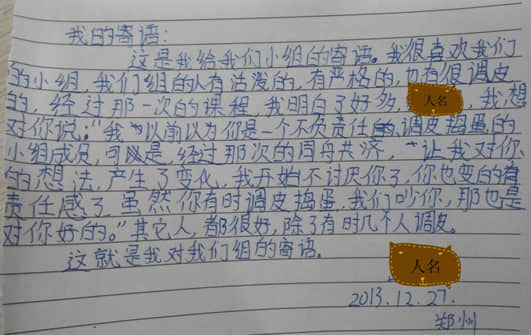 我的寄语:
这是我给我们小组的寄语。我很喜欢我们
的小组,我们组的人有活泼的,有严格的,也有很调皮
的,经过那一次的课程,我明白了好多,人名,我想
对你说:“我以前以为你是一个不负责任的调皮捣蛋的
小组成员,可是,经过那次的同舟共济,让我对你
的想法,产生了变化,我开始不讨厌你了,你也变的有
责任感了,虽然你有时调皮捣蛋,我们吵你,那也是
对你好的。”其它人,都很好,除了有时几个人调皮。
这就是我对我们组的寄语。
人名
2013.12.27.
郑州